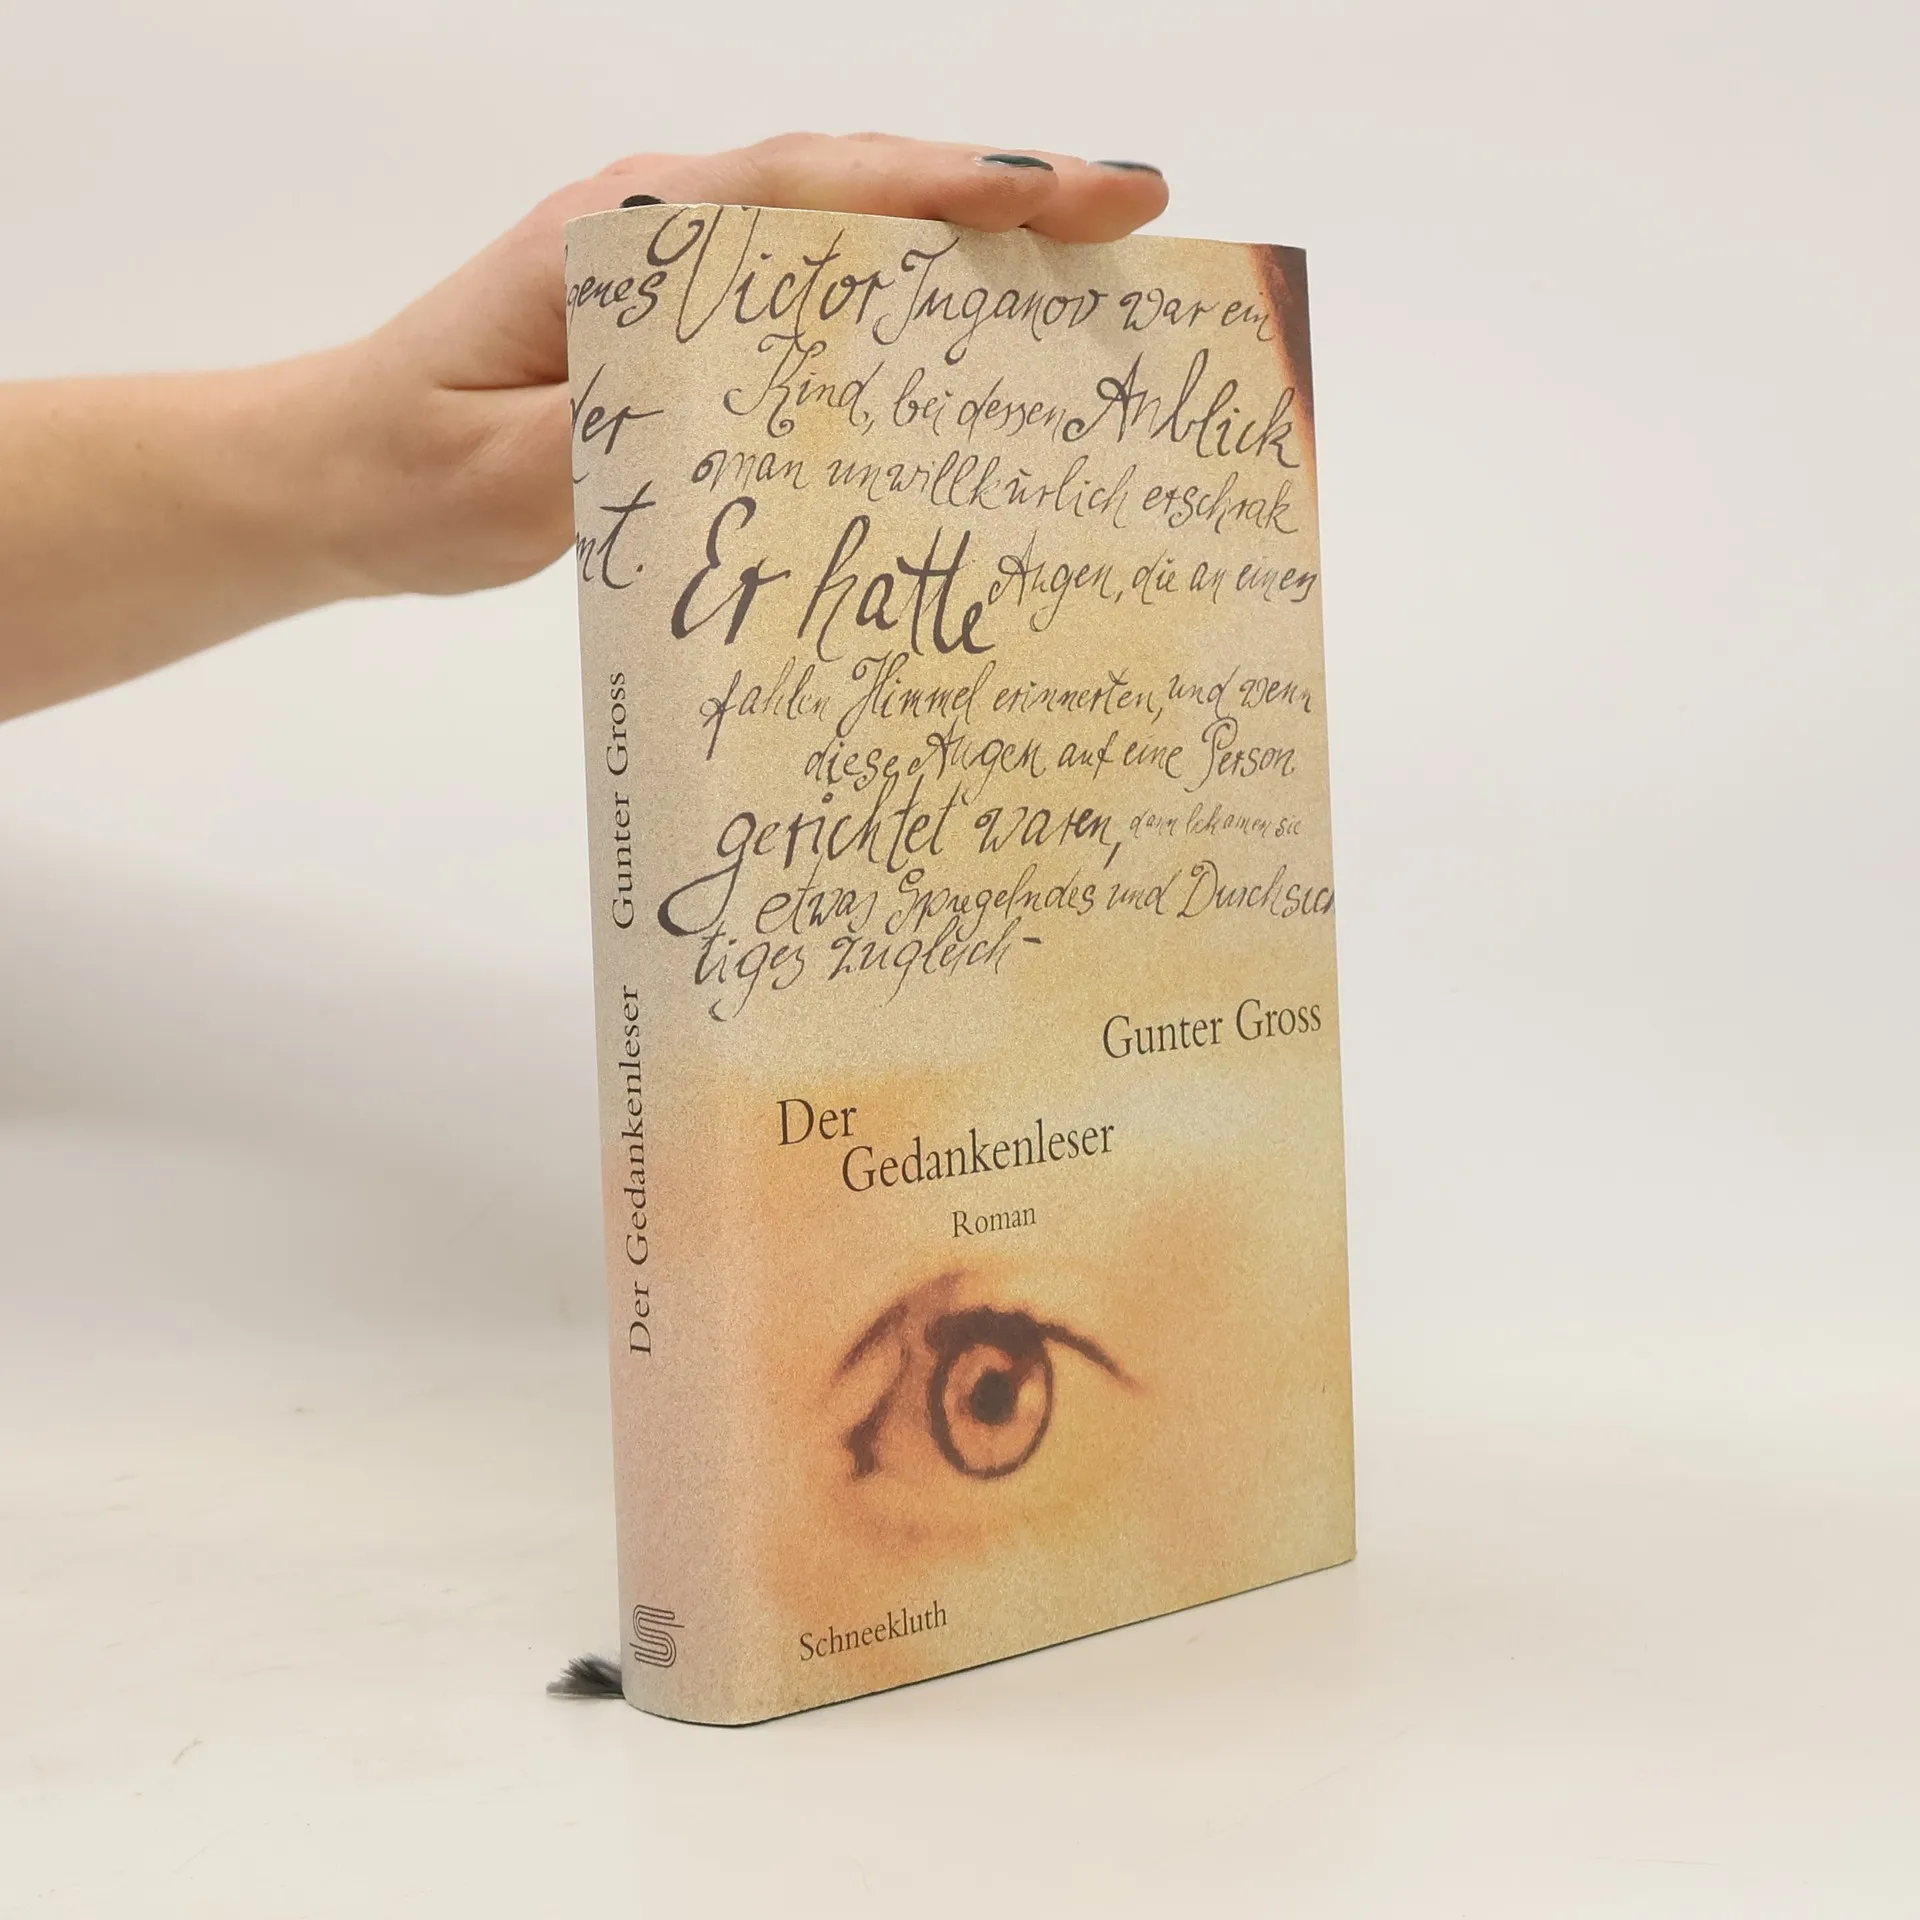 genes
der
nt.
Der Gedankenleser Gunter Gross
Victor Juganov war ein
Kind, bei dessen Anblick
man unwillkürlich erschrak
Er hatte Augen, die an einen
fahlen Himmel erinnerten, und wenn
diese Augen auf eine Person
gerichtet waren, dann bekamen sie
etwas Spiegelndes und Durchsich
tiges zugleich-
Gunter Gross
Der
Gedankenleser
Roman
Schneekluth